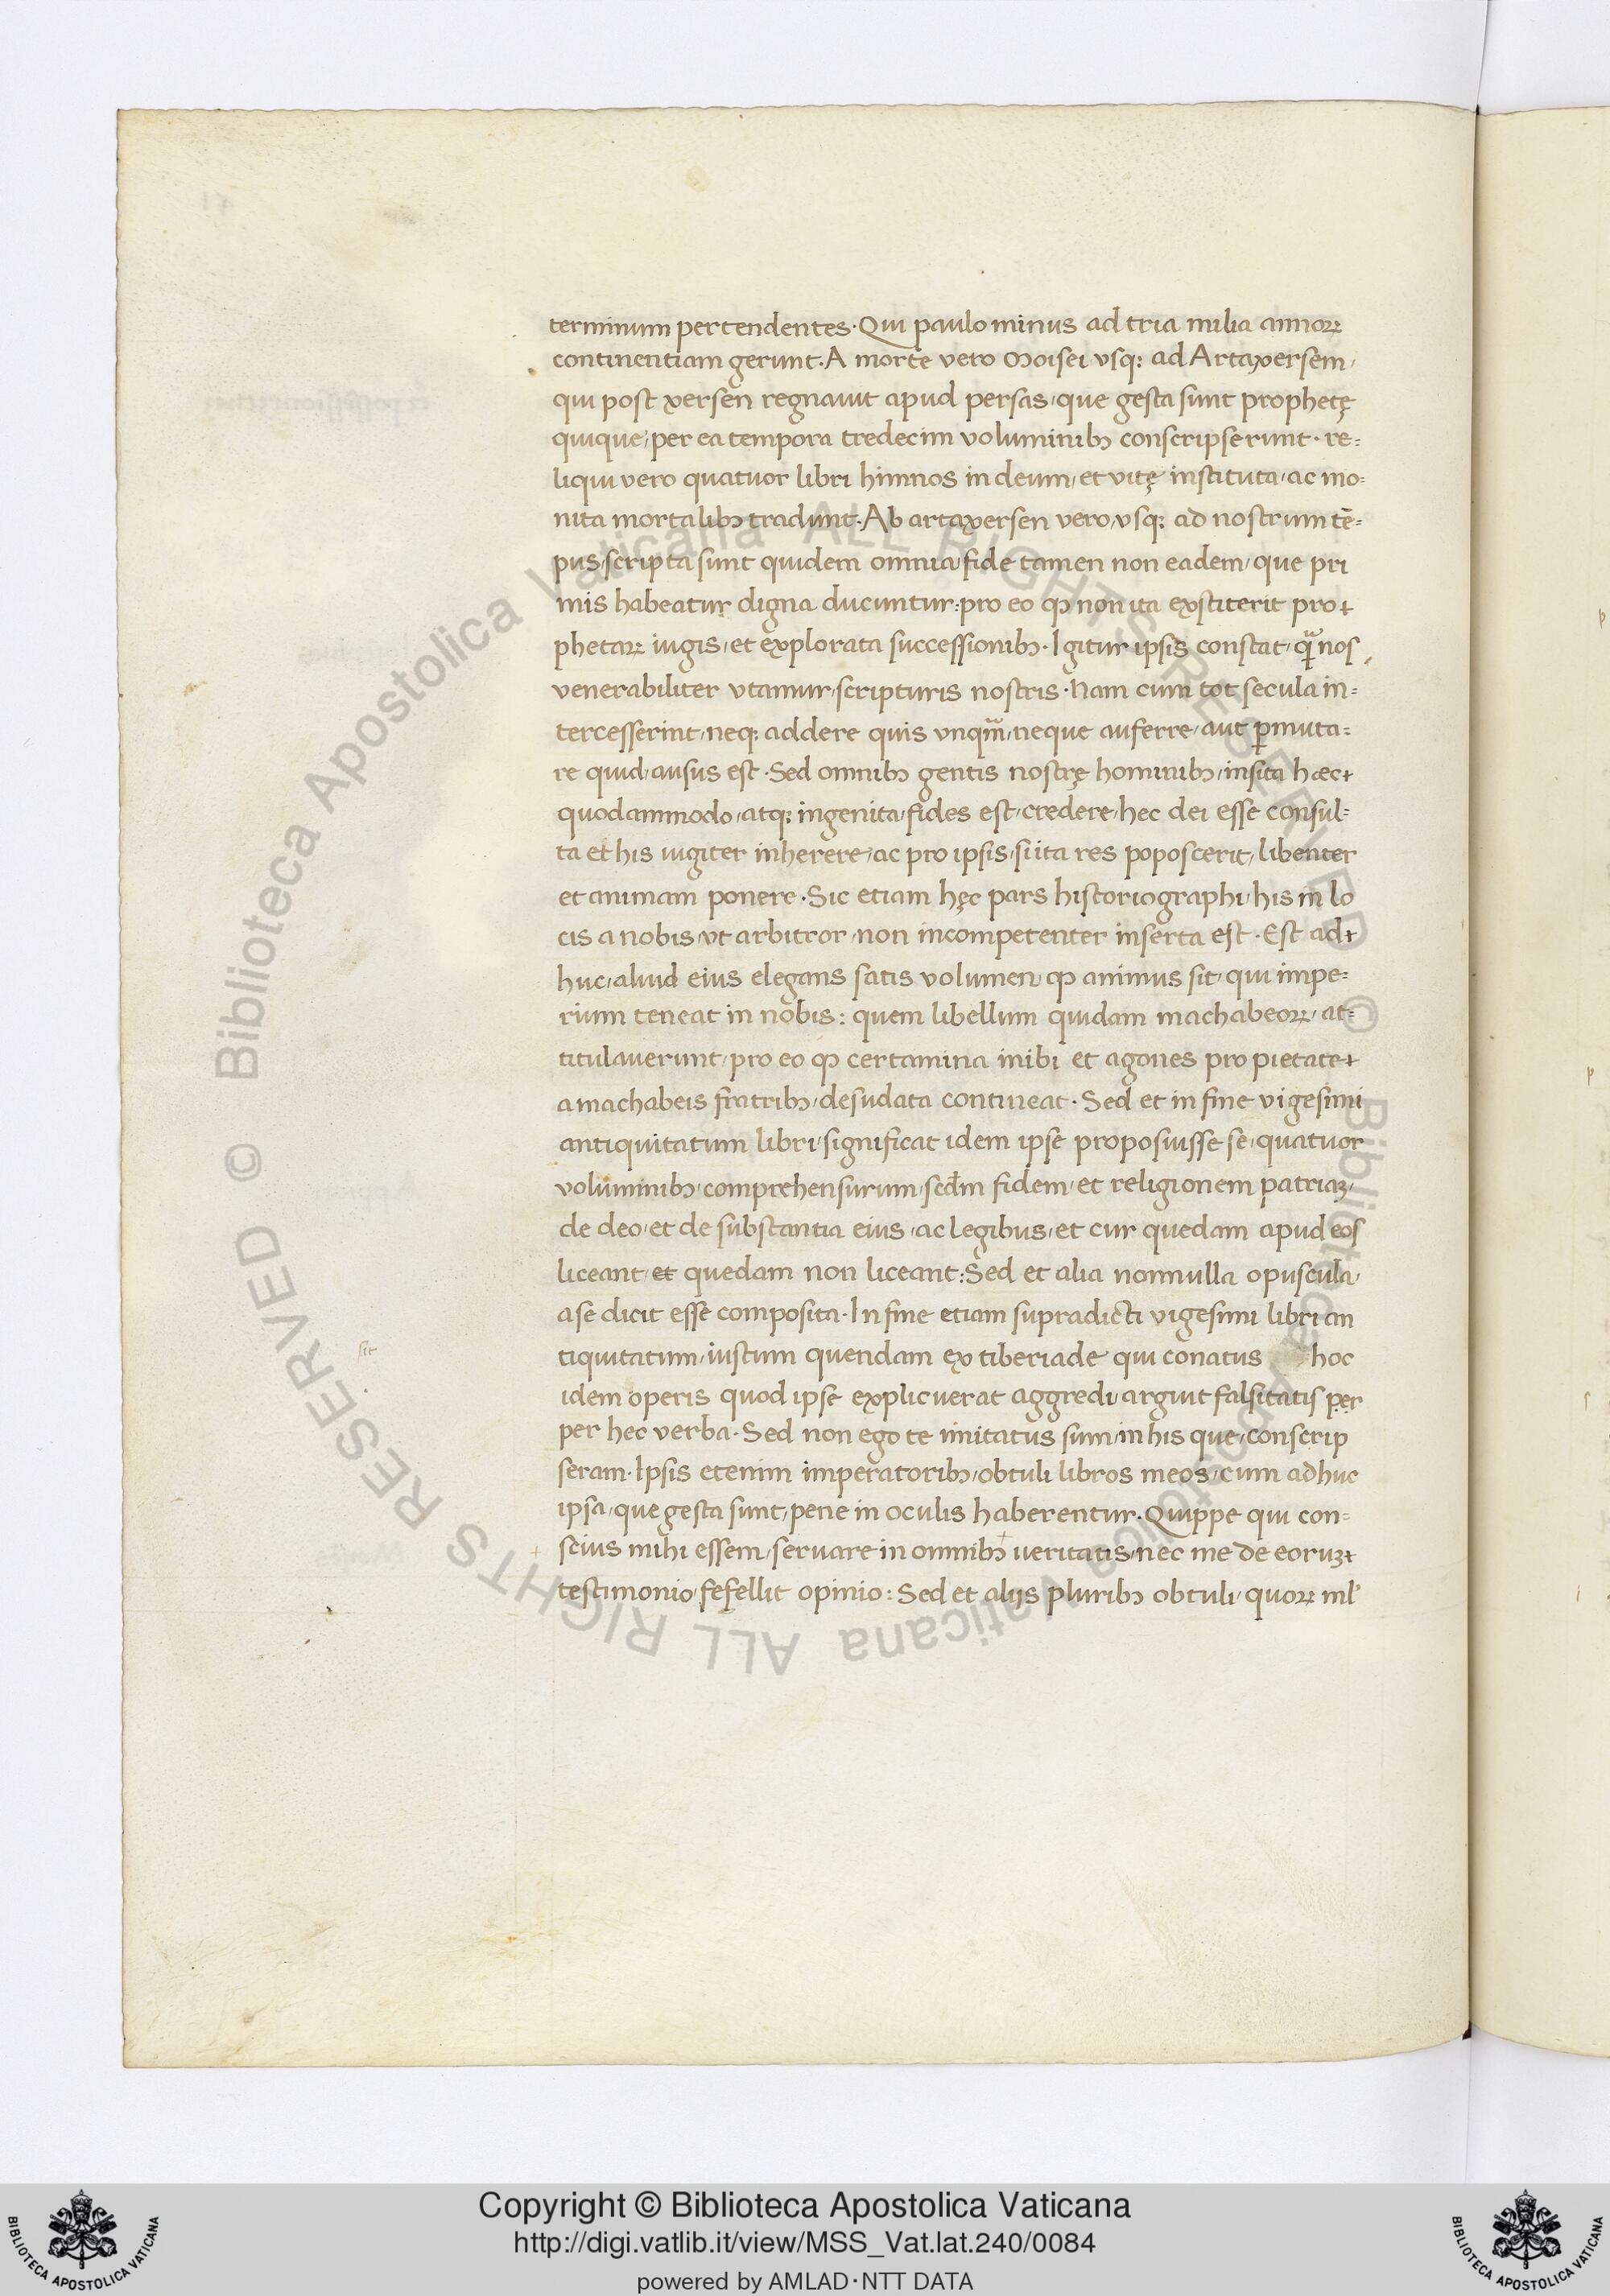 terminum pertendentes · Qui paulo minus ad tria milia annoꝝ
continentiam gerunt · A morte vero Moisei vsq; ad Artaxersem,
qui post xersen regnauit apud persas, que gesta sunt prophetę
quique, per ea tempora tredecim voluminibꝫ conscripserunt · re=
liqui vero quatuor libri himnos in deum, et vitę instituta, ac mo=
nita mortalibꝫ tradunt · Ab artaxersen vero, vsq; ad nostrum tē=
pus, scripta sunt quidem omnia, fide tamen non eadem, que pri
mis habeatur digna ducuntur: pro eo ꝙ non ita exstiterit pro
phetaꝝ iugis, et explorata successionibꝫ · Igitur ipsis constat, qͣ nos
venerabiliter vtamur, scripturis nostris · Nam cum tot secula in=
tercesserint, neq; addere quis vnqͣm, neque auferre, aut ꝑmuta=
re quid, ausus est · Sed omnibꝫ gentis nostrę hominibꝫ, insita hæc
quodammodo, atq; ingenita, fides est, credere, hec dei esse consul=
ta et his iugiter inherere, ac pro ipsis, si ita res poposcerit, libenter
et animam ponere · Sic etiam hęc pars historiographi, his in lo
cis a nobis, vt arbitror, non incompetenter inserta est · Est ad
huc, aliud eius elegans satis volumen, ꝙ animus sit, qui impe=
rium teneat in nobis: quem libellum quidam machabeoꝝ, at=
titulauerunt, pro eo ꝙ certamina inibi et agones pro pietate
a machabeis fratribꝫ, desudata contineat · Sed et in fine vigesimi
antiquitatum libri, significat idem ipse proposuisse se, quatuor
voluminibꝫ, comprehensurum, scd̄m fidem, et religionem patriaꝫ,
de deo, et de substantia eius, ac legibus, et cur quedam apud eos
liceant, et quedam non liceant: Sed et alia nonnulla opuscula,
a se dicit esse composita · In fine etiam supradicti vigesimi libri an
tiquitatum, iustum quendam ex tiberiade qui conatus hoc
sit
idem operis quod ipse explicuerat aggredi, arguit falsitatis per
per hec verba · Sed non ego te imitatus sum, in his que, conscrip
seram · Ipsis etenim imperatoribꝫ, obtuli libros meos, cum adhuc
ipsa, que gesta sunt, pene in oculis haberentur · Quippe qui con=
scius mihi essem, seruare in omnibꝫ ueritatis, nec me de eoruꝫ
testimonio, fefellit opinio: Sed et alijs pluribꝫ obtuli, quoꝝ ml̄
Copyright © Biblioteca Apostolica Vaticana
http://digi.vatlib.it/view/MSS_Vat.lat.240/0084
powered by AMLAD·NTT DATA
BIBLIOTECA APOSTOLICA VATICANA
BIBLIOTECA APOSTOLICA VATICANA
© Biblioteca Apostolica Vaticana ALL RIGHTS RESERVED © Biblioteca Apostolica Vaticana ALL RIGHTS RESERVED